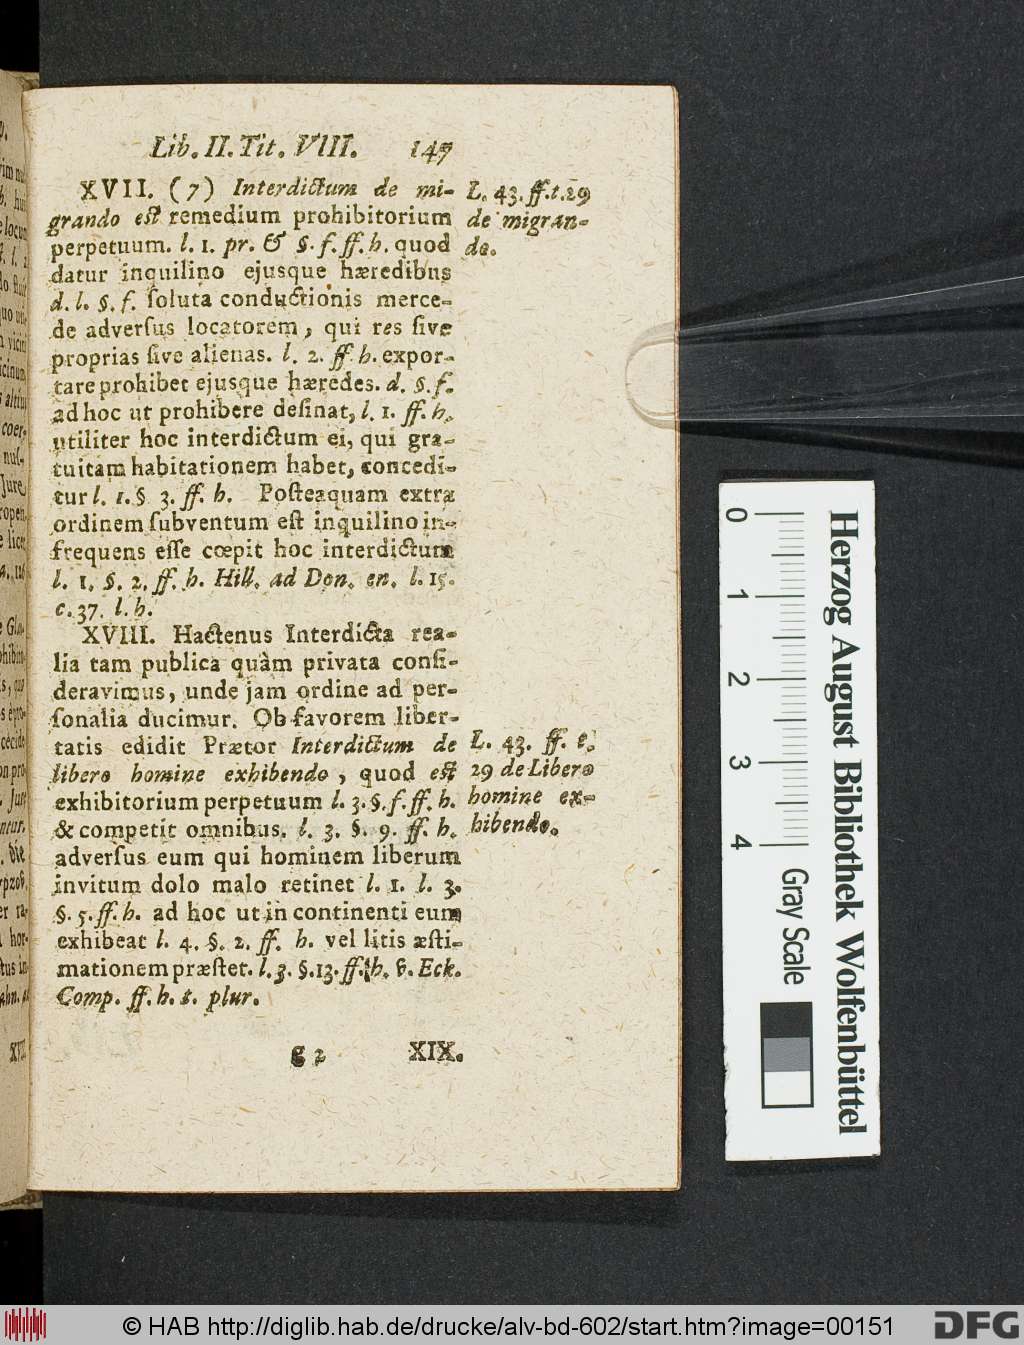 Lib. II. Tit. VIII. 147
XVII. (7) Interdictum de mi-
grando est remedium prohibitorium
perpetuum. l. 1. pr. & §. f. ff. h. quod
datur inquilino ejusque hæredibus
d. l. §. f. soluta conductionis merce-
de adversus locatorem, qui res sive
proprias sive alienas. l. 2. ff. h. expor-
tare prohibet ejusque hæredes. d. §. f.
ad hoc ut prohibere desinat, l. 1. ff. h.
utiliter hoc interdictum ei, qui gra-
tuitam habitationem habet, concedi-
tur l. 1. § 3. ff. h. Posteaquam extra
ordinem subventum est inquilino in-
frequens esse cœpit hoc interdictum
l. 1. §. 2. ff. h. Hill. ad Don. en. l. 15.
c. 37. l. h.
L. 43. ff. t. 29
de migran-
do.
XVIII. Hactenus Interdicta rea-
lia tam publica quàm privata consi-
deravimus, unde jam ordine ad per-
sonalia ducimur. Ob favorem liber-
tatis edidit Prætor Interdictum de
libero homine exhibendo, quod est
exhibitorium perpetuum l. 3. §. f. ff. h.
& competit omnibus. l. 3. §. 9. ff. h.
adversus eum qui hominem liberum
invitum dolo malo retinet l. 1. l. 3.
§. 5. ff. h. ad hoc ut in continenti eum
exhibeat l. 4. §. 2. ff. h. vel litis æsti-
mationem præstet. l. 3. §. 13. ff. h. v. Eck.
Comp. ff. h. t. plur.
L. 43. ff. t.
29 de Libero
homine ex-
hibendo.
g 2 XIX.
0 1 2 3 4 Gray Scale
Herzog August Bibliothek Wolfenbüttel
© HAB http://diglib.hab.de/drucke/alv-bd-602/start.htm?image=00151
DFG